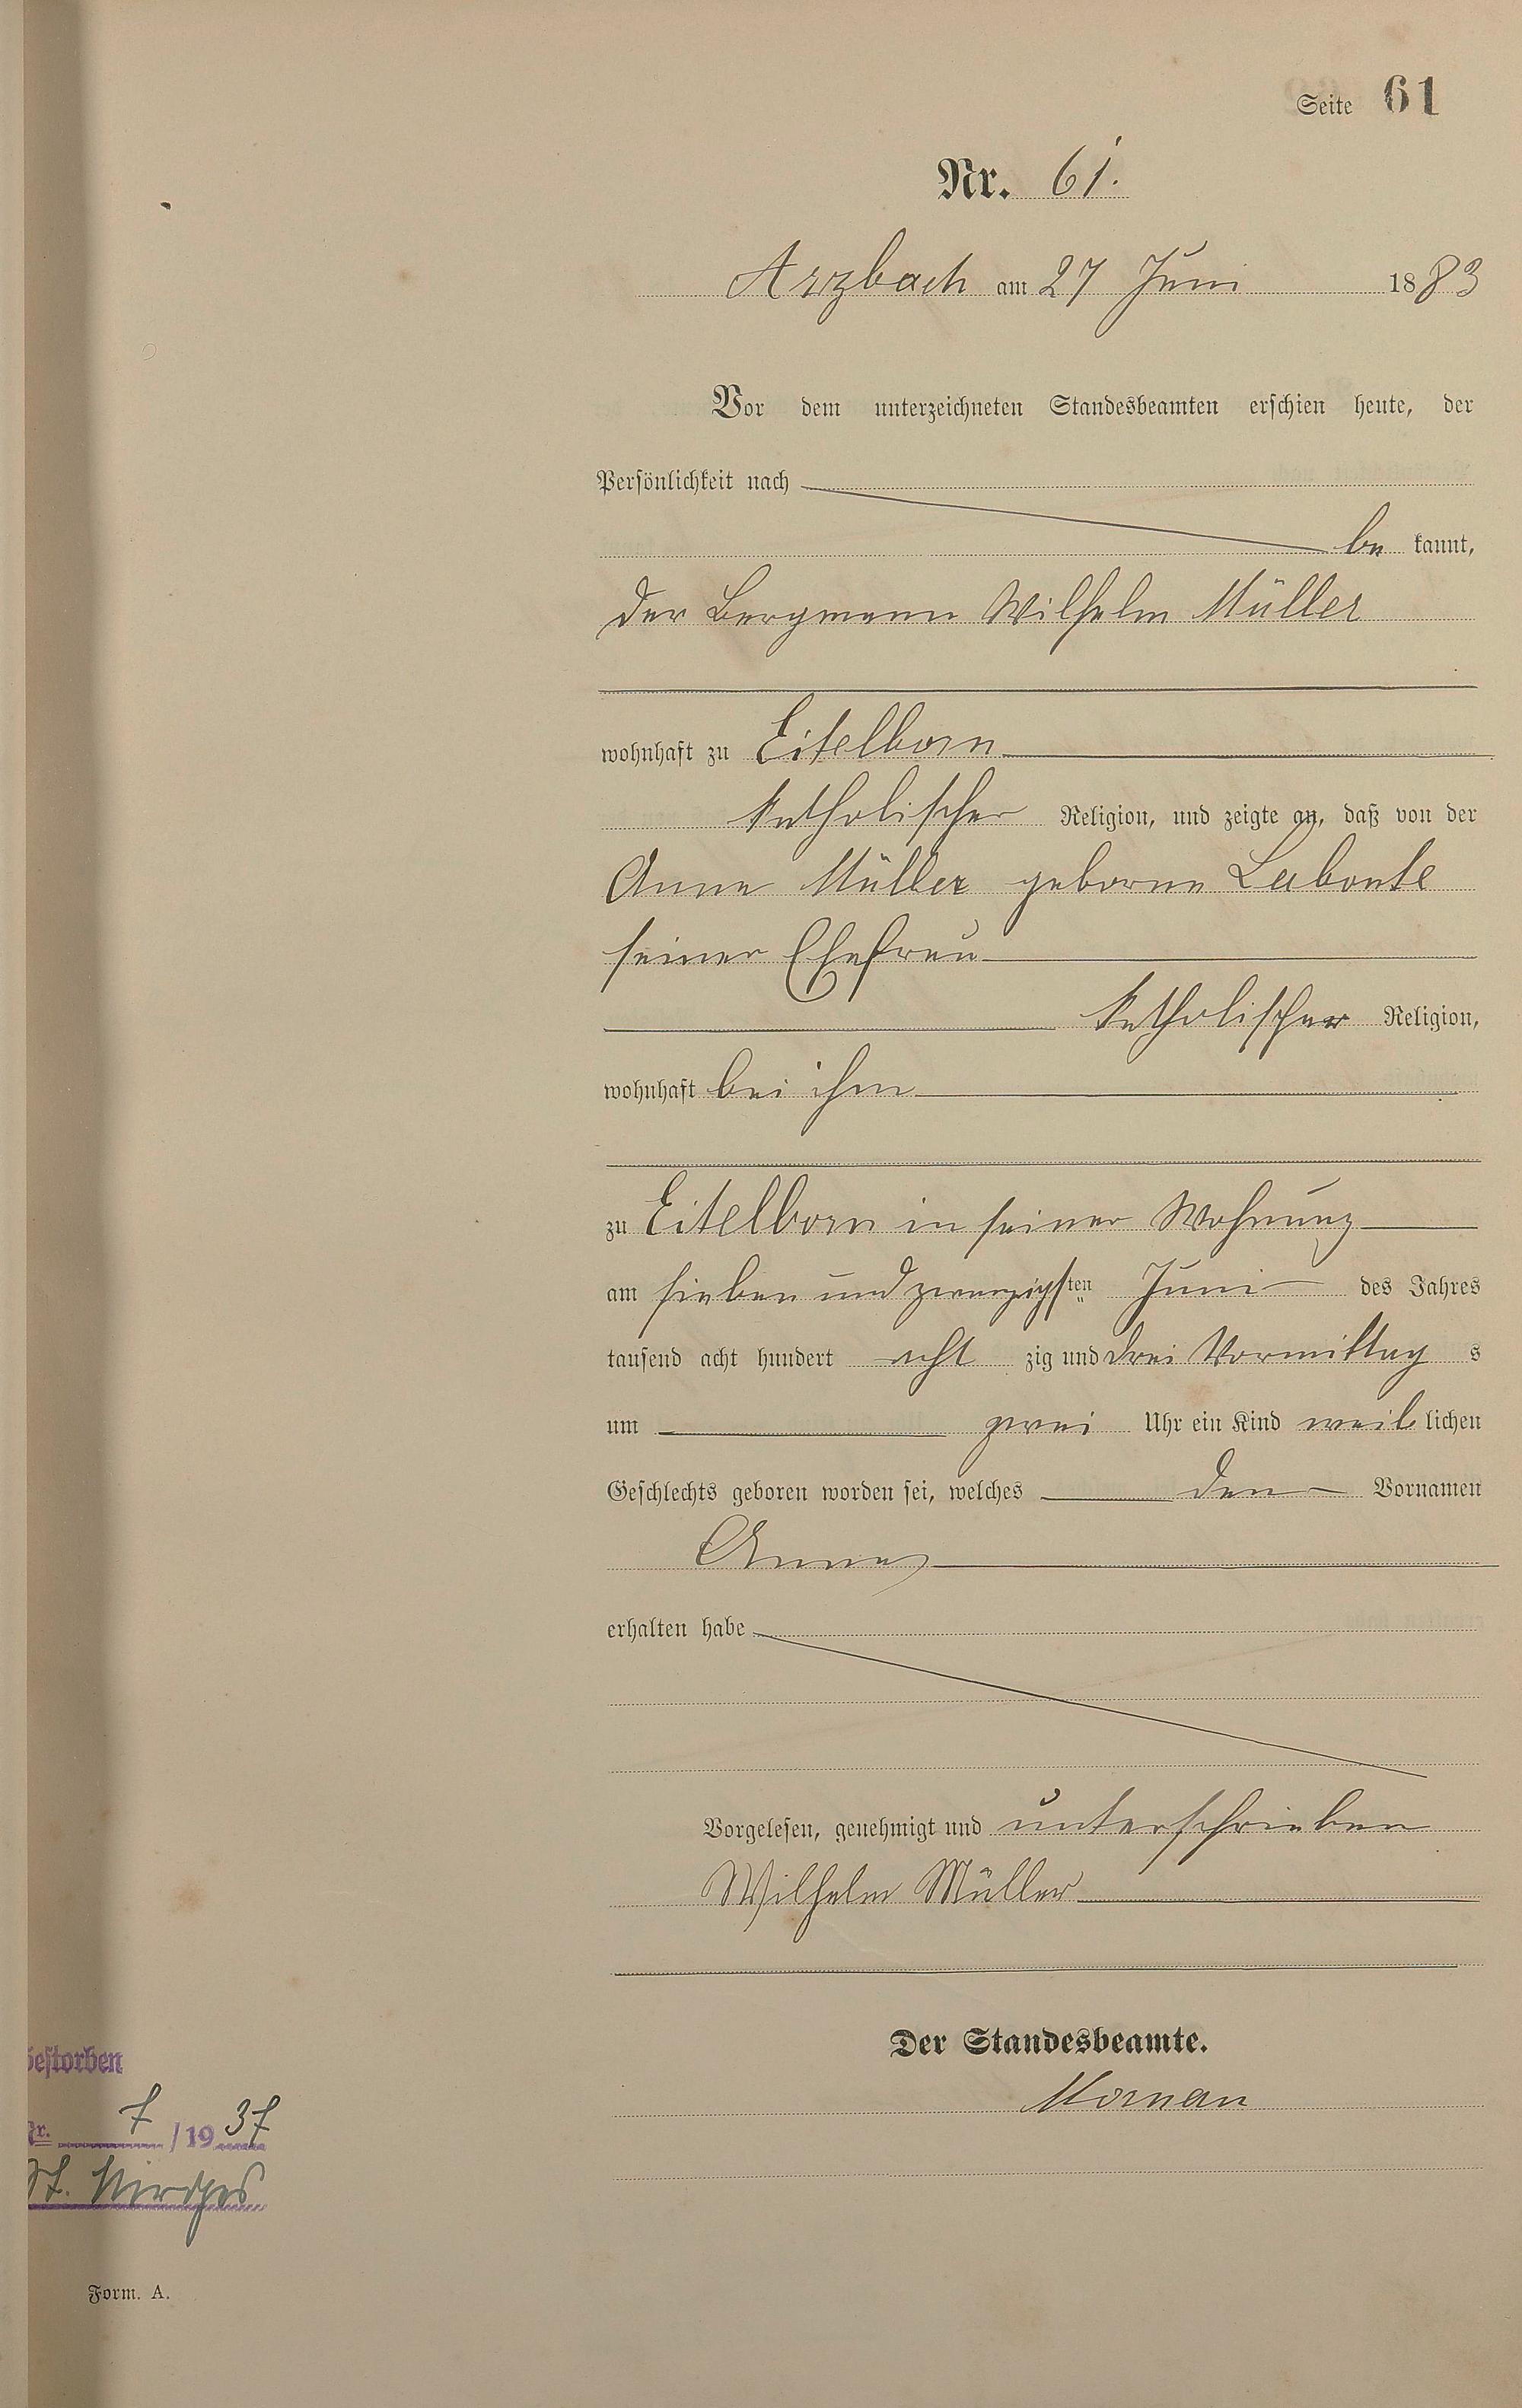 Seite 61
Nr. 61.
Arzbach am 27 Juni 1883
Vor dem unterzeichneten Standesbeamten erschien heute, der
Persönlichkeit nach
be kannt,
der Bergmann Wilhelm Müller
wohnhaft zu Eitelborn
katholischer Religion, und zeigte an, daß von der
Anna Müller geborne Labonte
seiner Ehefrau
katholischer Religion,
wohnhaft bei ihm
zu Eitelborn in seiner Wohnung
am sieben und zwanzigsten Juni des Jahres
tausend acht hundert acht zig und drei Vormittag s
um zwei Uhr ein Kind weib lichen
Geschlechts geboren worden sei, welches den Vornamen
Anna
erhalten habe
Vorgelesen, genehmigt und unterschrieben
Wilhelm Müller
Der Standesbeamte.
estorben
Nr. 7 / 1937
St.
Form. A.